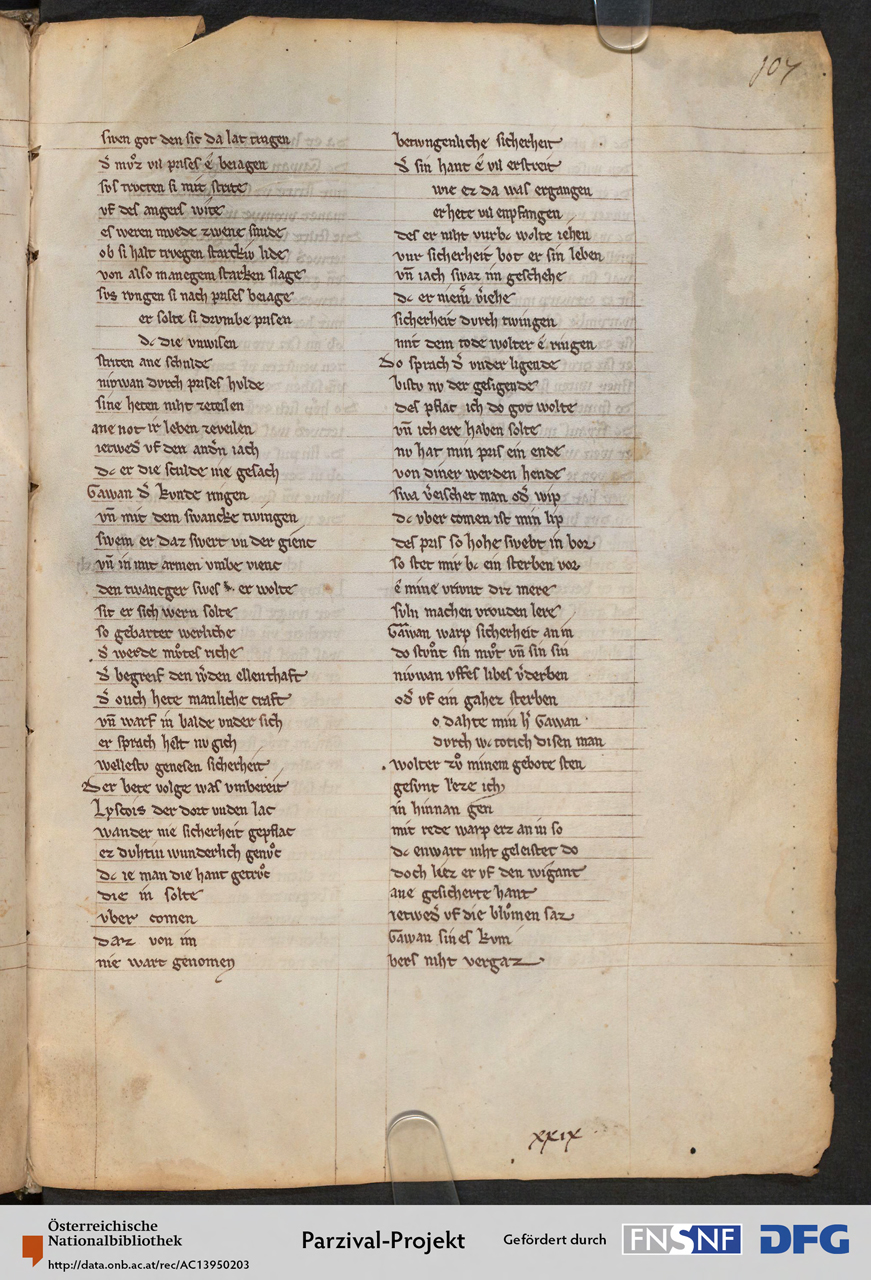 107
swen got den sic da lat tragen
d̄ mvͦz vil prises ē beiagen
svs trvten si mit strite
vf des angers wite
es weren mvede zwene smide
ob si halt trvegen starckiv lide
von also manegem starken slage
svs rvngen si nach prises beiage
er solte si drvmbe prisen
dc die vnwisen
striten ane schulde
nivwan dvrch prises hvlde
sine heten niht zeteilen
ane not ir leben zeveilen
ietwed̄ vf den andn̄ iach
dc er die scvlde nie gesach
Gawan d̄ kvnde ringen
vn̄ mit dem swancke twingen
swem er daz swert vnder gienc
vn̄ in mit armen vmbe vienc
den twancger swes er wolte
sit er sich wern solte
so gebarter werliche
d̄ werde mvͦtes riche
d̄ begreif den w̄den ellenthaft
d̄ ouch hete manliche craft
vn̄ warf in balde vnder sich
er sprach helt nv gich
wellestv genesen sicherheit
Der bete volge was vmbereit
Lyscois der dort vnden lac
wander nie sicherheit gepflac
ez dvhtin wunderlich genvͦc
dc ie man die hant getrvͦc
die in solte
vber comen
daz von im
nie wart genomen
betwngenliche sicherheit
d̄ sin hant ē vil erstreit
wie ez da was ergangen
er hete vil enpfangen
des er niht vurbc wolte iehen
vur sicherheit bot er sin leben
vn̄ iach swaz im geschehe
dc er niem̄ v̄iehe
sicherheit dvrch twingen
mit dem tode wolter ē ringen
Do sprach d̄ vnder ligende
bistv nv der gesigende
des pflac ich do got wolte
vn̄ ich ere haben solte
nv hat min pris ein ende
von diner werden hende
swa v̄eischet man od̄ wip
dc vber comen ist min lip
des pris so hohe swebt in bor
so stet mir bc ein sterben vor
ē mine vrivnt diz mere
svln machen vrouden lere
Gawan warp sicherheit an in
do stvͦnt sin mvͦt vn̄ sin sin
nivwan vffes libes v̄derben
od̄ vf ein gahez sterben
o dahte min h̄ Gawan
dvrch wc totich disen man
wolter zvͦ minem gebote sten
gesvnt lieze ich
in hinnan gen
mit rede warp erz an in so
dc enwart niht geleistet do
doch liez er vf den wigant
ane gesicherte hant
ietwed̄ vf die blvͦmen saz
Gawan sines kvm
bers niht vergaz
xxix
Österreichische
Nationalbibliothek
http://data.onb.ac.at/rec/AC13950203
Parzival-Projekt
Gefördert durch
FNSNF
DFG